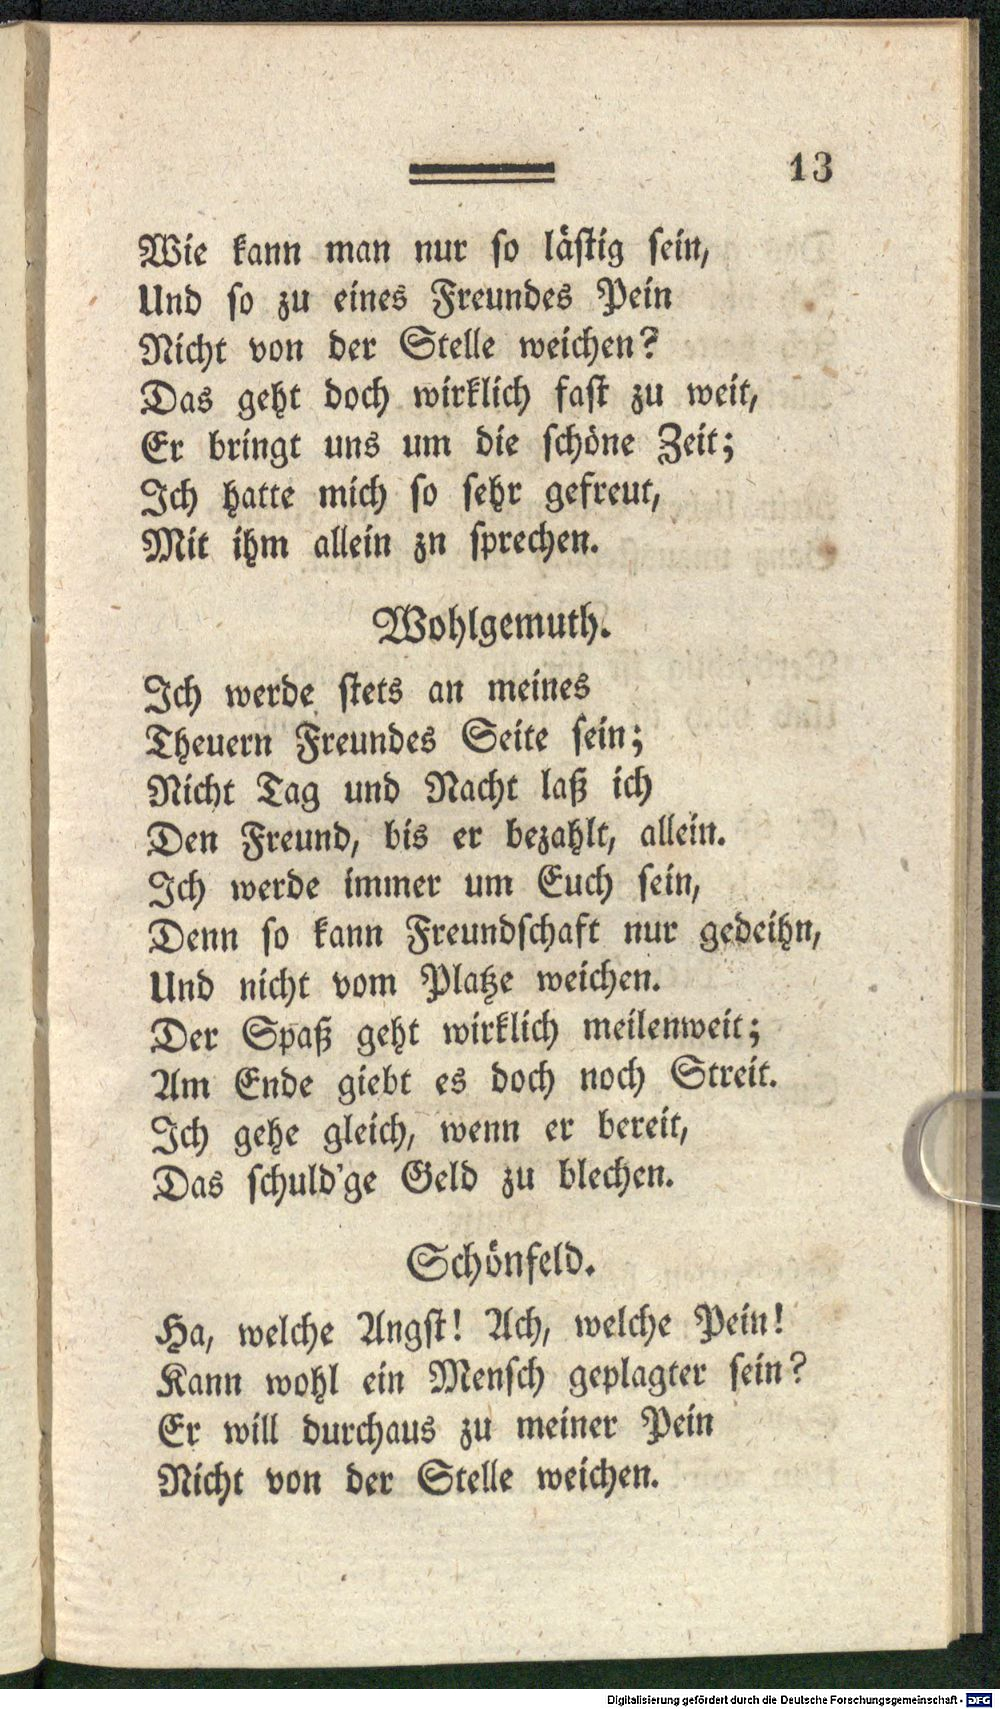 13
Wie kann man nur so lästig sein,
Und so zu eines Freundes Pein
Nicht von der Stelle weichen?
Das geht doch wirklich fast zu weit,
Er bringt uns um die schöne Zeit;
Ich hatte mich so sehr gefreut,
Mit ihm allein zn sprechen.
Wohlgemuth.
Ich werde stets an meines
Theuern Freundes Seite sein;
Nicht Tag und Nacht laß ich
Den Freund, bis er bezahlt, allein.
Ich werde immer um Euch sein,
Denn so kann Freundschaft nur gedeihn,
Und nicht vom Platze weichen.
Der Spaß geht wirklich meilenweit;
Am Ende giebt es doch noch Streit.
Ich gehe gleich, wenn er bereit,
Das schuld'ge Geld zu blechen.
Schönfeld.
Ha, welche Angst! Ach, welche Pein!
Kann wohl ein Mensch geplagter sein?
Er will durchaus zu meiner Pein
Nicht von der Stelle weichen.
Digitalisierung gefördert durch die Deutsche Forschungsgemeinschaft - DFG